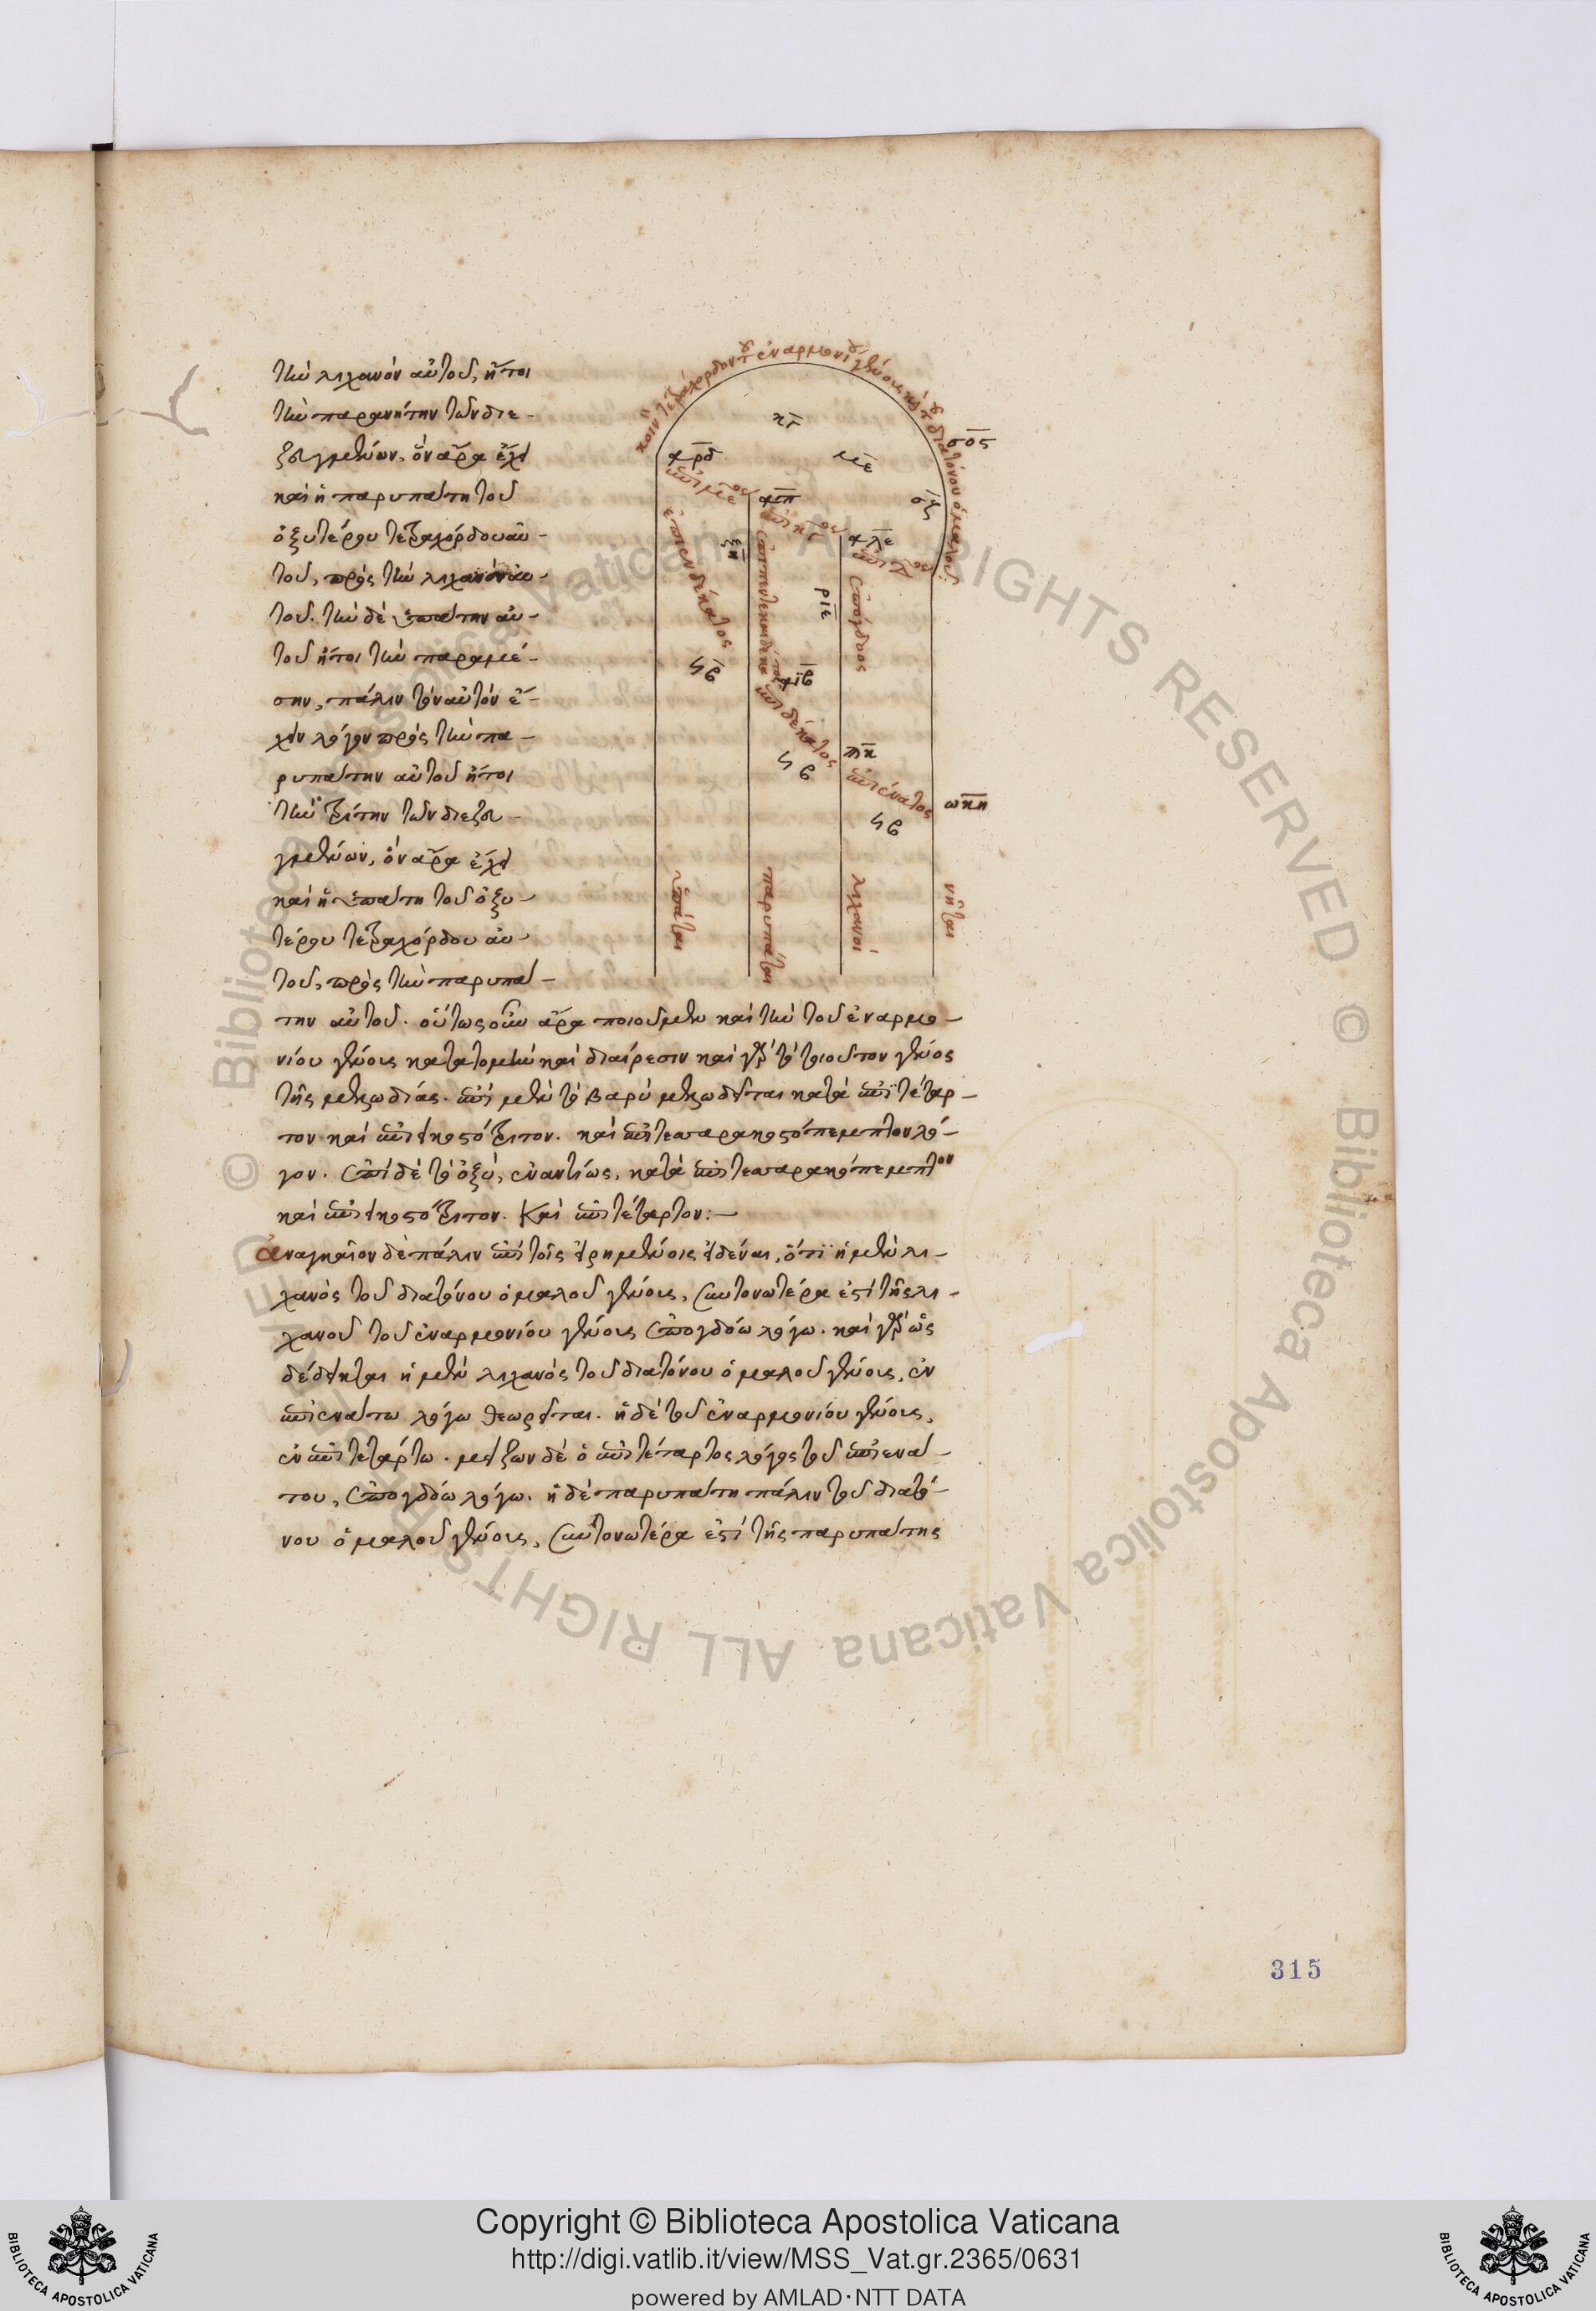 τὴν λιχανὸν αὐτοῦ, ἤτοι
τὴν παρανήτην τῶν διε-
ζευγμένων, ὃν ἄρα ἔχει
καὶ ἡ παρυπάτη τοῦ
ὀξυτέρου τετραχόρδου αὐ-
τοῦ, πρὸς τὴν λιχανὸν αὐ-
τοῦ. τὴν δὲ ὑπάτην αὐ-
τοῦ ἤτοι τὴν παραμέ-
σην, πάλιν τὸν αὐτὸν ἔ-
χειν λόγον πρὸς τὴν πα-
ρυπάτην αὐτοῦ ἤτοι
τὴν τρίτην τῶν διεζευ-
γμένων, ὃν ἄρα ἔχει
καὶ ἡ ὑπάτη τοῦ ὀξυ-
τέρου τετραχόρδου αὐ-
τοῦ, πρὸς τὴν παρυπά-
την αὐτοῦ. οὕτως οὖν ἄρα ποιοῦμεν καὶ τὴν τοῦ ἐναρμο-
νίου γένους κατατομὴν καὶ διαίρεσιν καὶ γὰρ τὸ τοιοῦτον γένος
τῆς μελῳδίας. ἐπὶ μὲν τὸ βαρὺ μελῳδεῖται κατὰ ἐπιτέταρ-
τον καὶ ἐπιεικοστότριτον. καὶ ἐπιτεσσαρακοστόπεμπτον λό-
γον. ἐπὶ δὲ τὸ ὀξύ, ἐναντίως, κατὰ ἐπιτεσσαρακόπεμπτον
καὶ ἐπιεικοστότριτον. καὶ ἐπιτέταρτον:-
ἀναγκαῖον δὲ πάλιν ἐπὶ τοῖς εἰρημένοις εἰδέναι, ὅτι ἡ μὲν λι-
χανὸς τοῦ διατόνου ὁμαλοῦ γένους, συντονωτέρα ἐστὶ τῆς λι-
χανοῦ τοῦ ἐναρμονίου γένους ἐπογδόω λόγω. καὶ γὰρ ὡς
δέδεικται ἡ μὲν λιχανὸς τοῦ διατόνου ὁμαλοῦ γένους, ἐν
ἐπιενάτω λόγω θεωρεῖται. ἡ δὲ τοῦ ἐναρμονίου γένους,
ἐν ἐπιτετάρτω. μείζων δὲ ὁ ἐπιτέταρτος λόγος τοῦ ἐπιενά-
του, ἐπογδόω λόγω. ἡ δὲ παρυπάτη πάλιν τοῦ διατό-
νου ὁμαλοῦ γένους, συντονωτέρα ἐστὶ τῆς παρυπάτης
κοινὸν τετράχορδον τοῦ ἐναρμονίου γένους καὶ τοῦ διατόνου ὁμαλοῦ:
κγ
με
σος
ἐπιενδέκατος
ἐπιπεντεκαιδέκατος
ἐπόγδοος
ριε
ϟβ
ἐπιδέκατος
ϟβ
ἐπιένατος
ϟβ
ωκη
ὑπάται
παρυπάται
λιχανοί
νῆται
315
© Biblioteca Apostolica Vaticana ALL RIGHTS RESERVED
© Biblioteca Apostolica Vaticana ALL RIGHTS RESERVED
BIBLIOTECA APOSTOLICA VATICANA
Copyright © Biblioteca Apostolica Vaticana
http://digi.vatlib.it/view/MSS_Vat.gr.2365/0631
powered by AMLAD·NTT DATA
BIBLIOTECA APOSTOLICA VATICANA